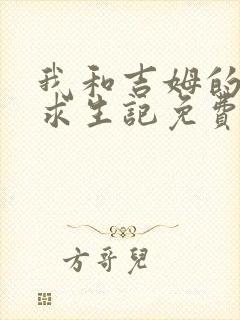 我和吉姆的
求生記免費
方哥兒